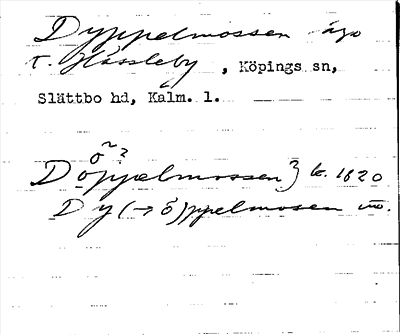 Dyppelmossen ägo
t. Hässleby, Köpings sn,
Slättbo hd, Kalm. l.
ö~?
Doppelmossen} k. 1820
Dy(→ö)ppelmosen